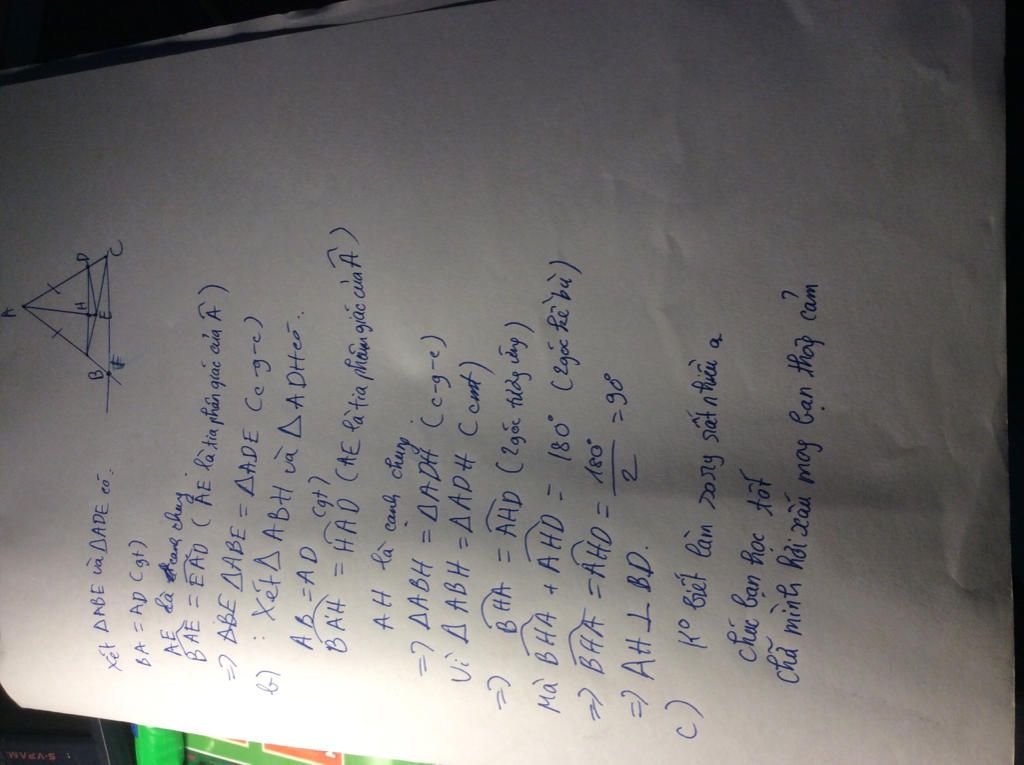 A
B
H
D
E
F
C
Xét ΔABE và ΔADE có:
BA = AD (gt)
AE là cạnh chung
BAE = EAD (AE là tia phân giác của Â)
=> ΔABE = ΔADE (c-g-c)
b) : Xét ΔABH và ΔADH có:
AB = AD (gt)
BAH = HAD (AE là tia phân giác của Â)
AH là cạnh chung
=> ΔABH = ΔADH (c-g-c)
Vì ΔABH = ΔADH (cmt)
=> BHA = AHD (2 góc tương ứng)
Mà BHA + AHD = 180° (2 góc kề bù)
=> BHA = AHD = 180°/2 = 90°
=> AH ⊥ BD.
c) K° biết làm sorry nhiều ạ
chúc bạn học tốt
chữ mình hơi xấu mong bạn thông cảm
S-VPAM